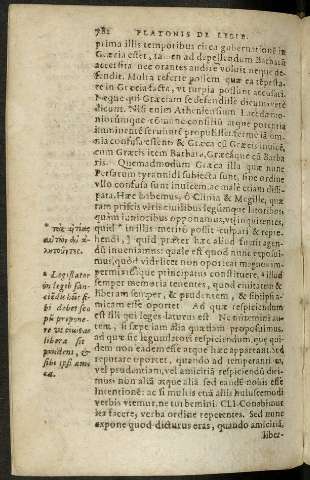 782 PLATONIS DE LEGIB.
prima illis temporibus circa gubernationē in
Græcia esset, tamen ad depellendum Barbarū
accersita nec orantes audire voluit neque de-
fendit. Multa referre possem quæ ea tēpesta-
te in Græcia facta, vt turpia possunt accusari.
Neque qui Græciam se defendisse dicunt verè
dicunt. Nisi enim Atheniensium Lacedæmo-
niorumque cōmune consiliū atque potentia
imminentē seruitutē propulisset, fermè iā om-
nia confusa essent & Græca cū Græcis inuicē,
cum Græcis item Barbara, Græcáque cū Barba
ris. Quemadmodum Græca illa quæ nunc
Persarum tyrannidi subiecta sunt, sine ordine
vllo confusa sunt inuicem, ac malè etiam dissi-
pata. Hæc habemus, ô Clinia & Megille, quæ
tam priscis viris ciuilibus legúmque latoribus,
quàm iunioribus opponamus, vt inquirentes,
quid in illis meritò possit culpari & repre-
hendi, quid præter hæc aliud fuerit agen-
dū inueniamus: quale est quod nunc exposui-
mus, quòd videlicet non oporteat magnos im-
permixtósque principatus constituere, illud
semper memoria tenentes, quòd ciuitatem &
liberam semper, & prudentem, & sibiipsi a-
micam esse oportet Ad quæ respiciendum
est illi qui leges laturus est Ne miremini au-
tem, si sæpe iam alia quædam proposuimus,
ad quæ sic legumlatori respiciendum, quæ qui-
dem non eadem esse atque hæc apparent: sed
reputare oportet, quando ad temperantiam,
vel prudentiam, vel amicitiā respiciendū dici-
mus non aliā atque aliā sed eandē nobis esse
intentionē: ac si multis etiā aliis huiusmodi
verbis vtemur, ne turbemini. CLI. Conabimur
ita facere, verba ordine repetentes. Sed nunc
expone quod dicturus eras, quando amicitiā,
liber-
* Legislator
in legib san-
ciēdis
bi debet sco-
pū propone-
re vt ciuitas
libera sit
prudens, &
sibi ipsi ami
ca.